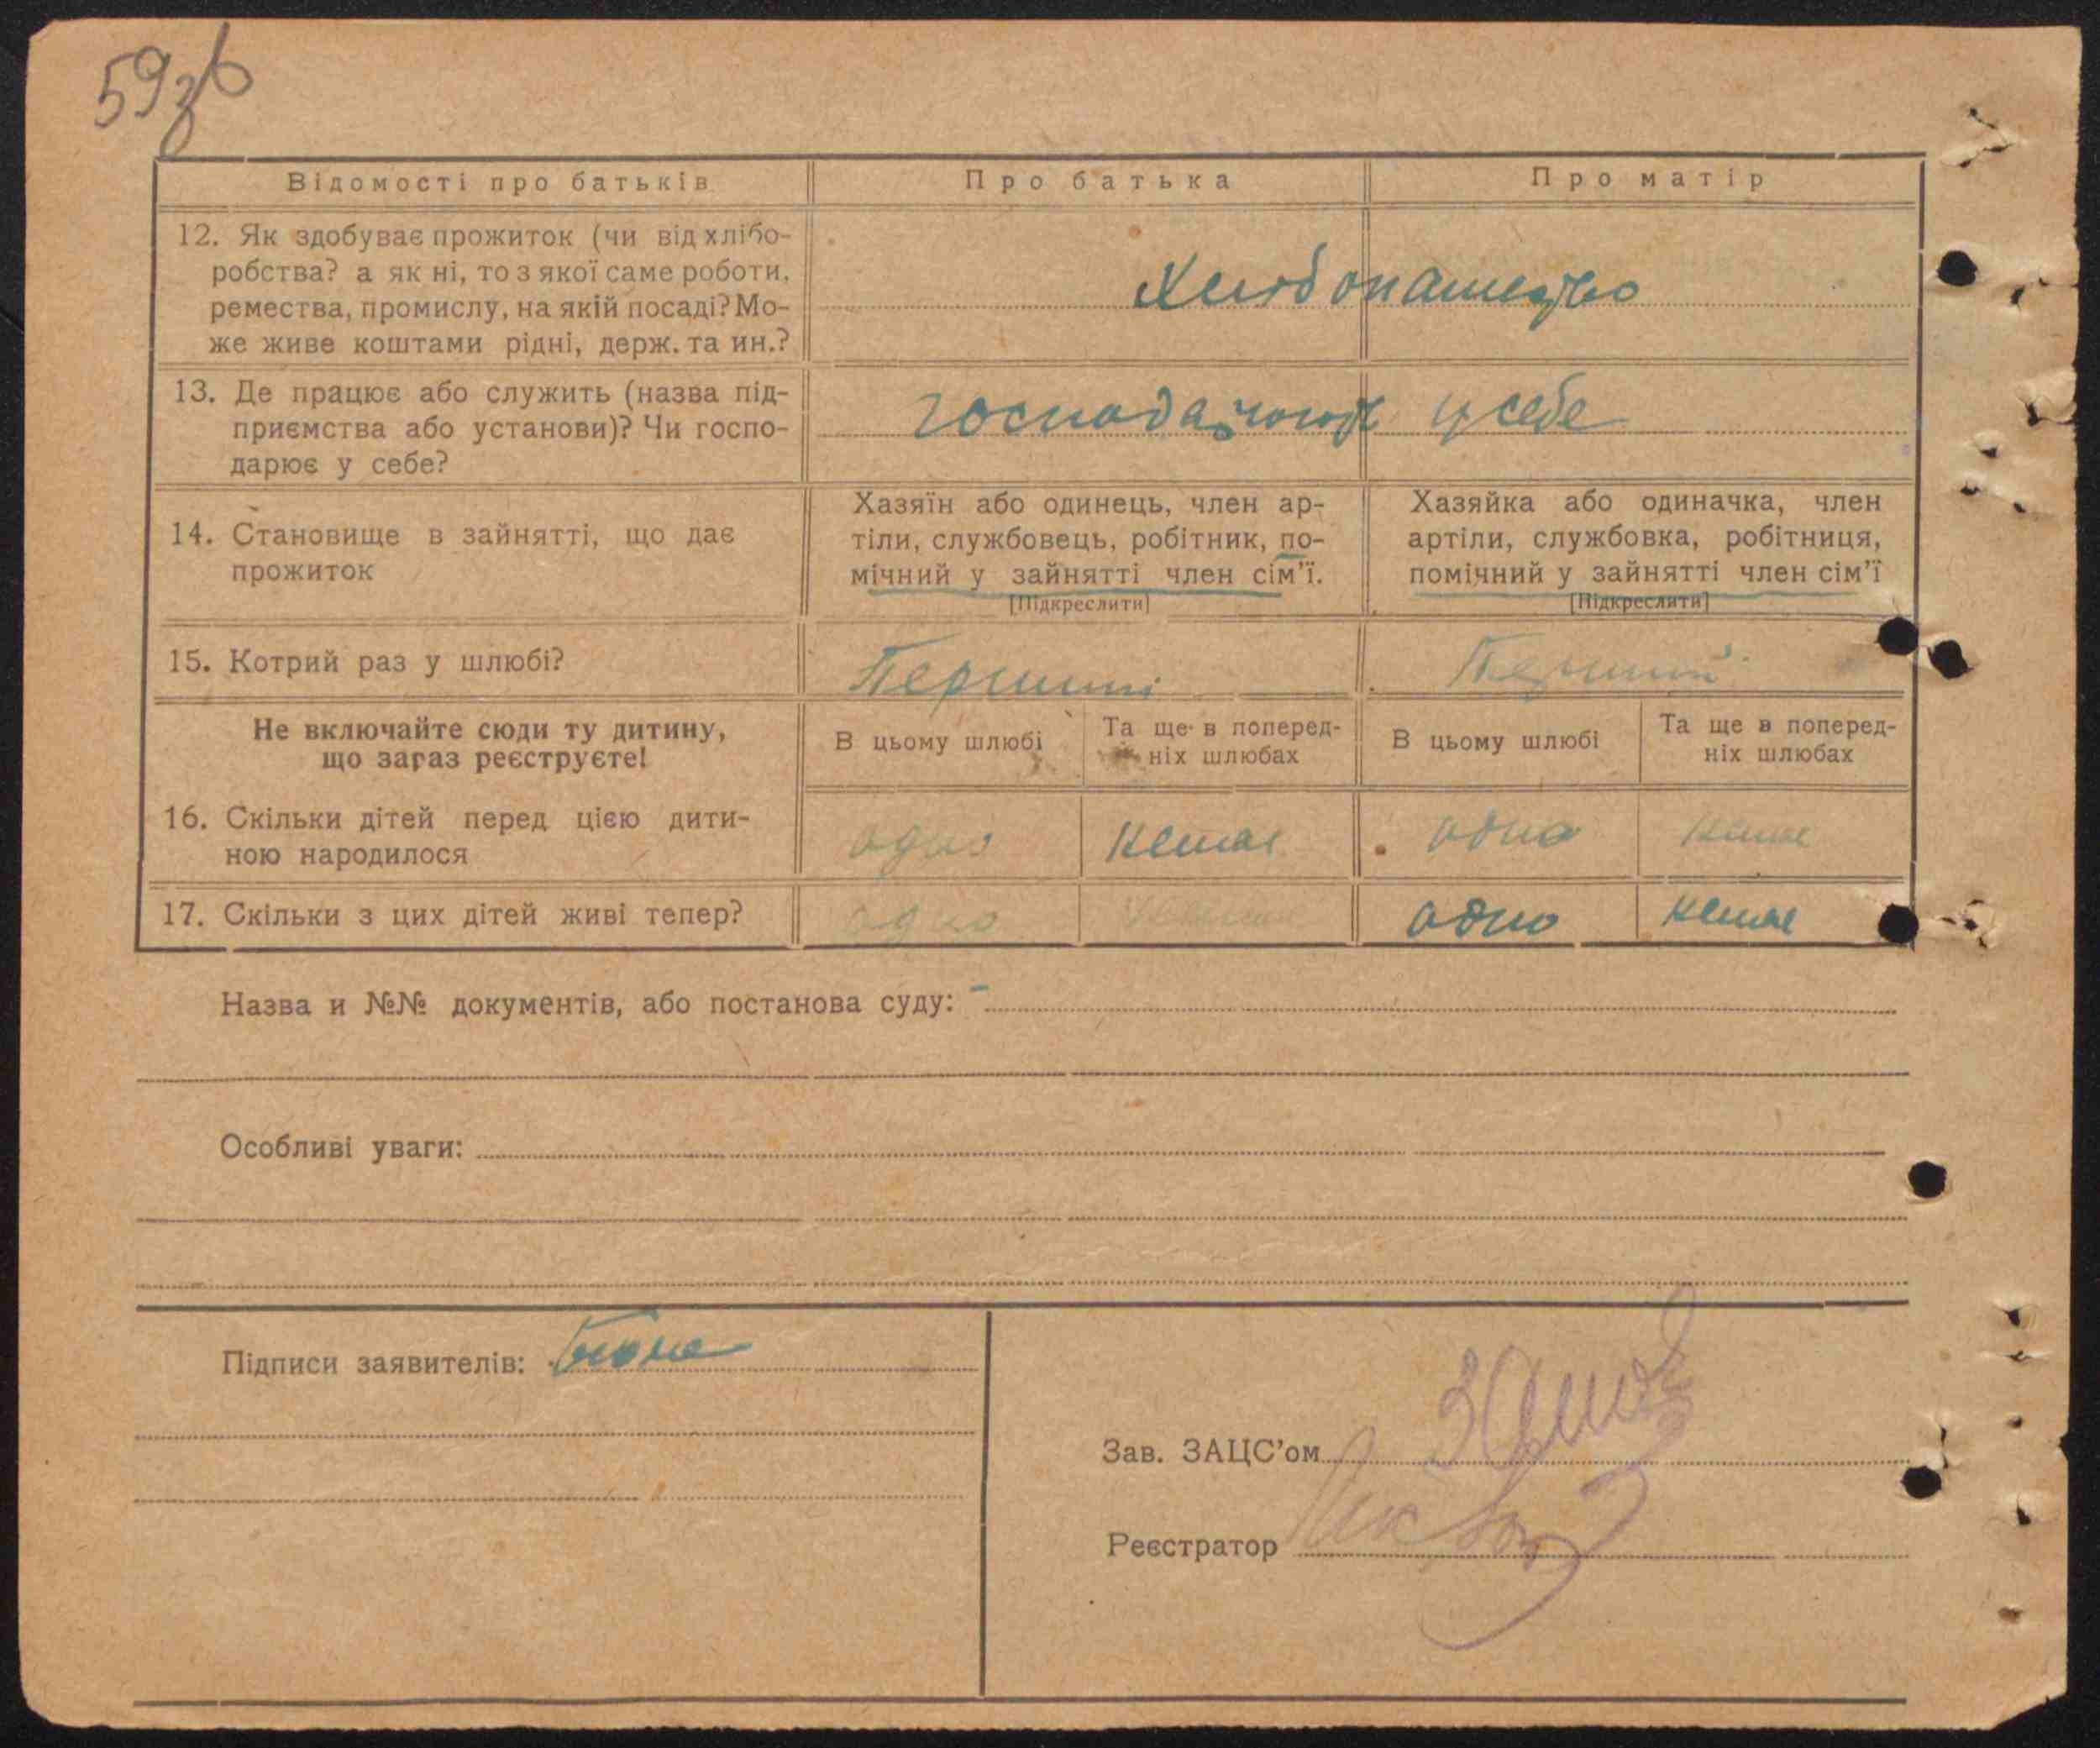 59зв
Відомості про батьків
Про батька
Про матір
12. Як здобуває прожиток (чи від хлібо-
робства? а як ні, то з якої саме роботи,
ремества, промислу, на якій посаді? Мо-
же живе коштами рідні, держ. та ин.?
Хлібопашество
13. Де працює або служить (назва під-
приємства або установи)? Чи госпо-
дарює у себе?
господарюют у себе
14. Становище в зайнятті, що дає
прожиток
Хазяїн або одинець, член ар-
тіли, службовець, робітник, по-
мічний у зайнятті член сім'ї.
[Підкреслити]
Хазяйка або одиначка, член
артіли, службовка, робітниця,
помічний у зайнятті член сім'ї
[Підкреслити]
15. Котрий раз у шлюбі?
Перший
Перший
Не включайте сюди ту дитину,
що зараз реєструєте!
В цьому шлюбі
Та ще в поперед-
ніх шлюбах
В цьому шлюбі
Та ще в поперед-
ніх шлюбах
16. Скільки дітей перед цією дити-
ною народилося
одно
немає
одно
немає
17. Скільки з цих дітей живі тепер?
одно
немає
одно
немає
Назва и №№ документів, або постанова суду: –
Особливі уваги:
Підписи заявителів:
Зав. ЗАЦС'ом
Реєстратор